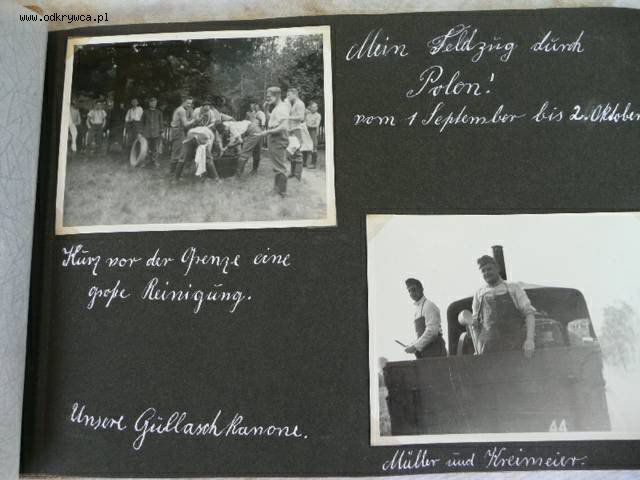 www.odkrywca.pl
Mein Feldzug durch
Polen!
vom 1 September bis 2. Oktober
Kurz vor der Grenze eine
große Reinigung.
44
Unsere Güllasch kanone.
Müller und Kreimeier.